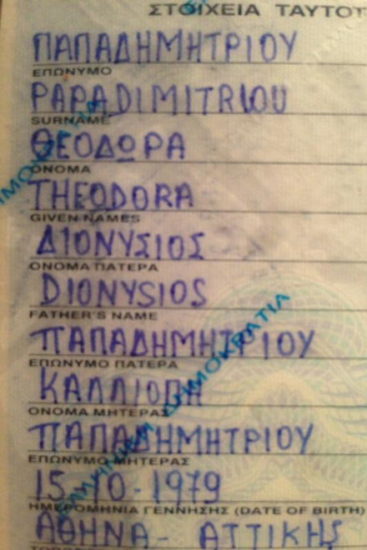 ΣΤΟΙΧΕΙΑ ΤΑΥΤΟΤ
ΠΑΠΑΔΗΜΗΤΡΙΟΥ
ΕΠΩΝΥΜΟ
PAPADIMITRIOU
SURNAME
ΘΕΟΔΩΡΑ
ΟΝΟΜΑ
THEODORA
GIVEN NAMES
ΔΙΟΝΥΣΙΟΣ
ΟΝΟΜΑ ΠΑΤΕΡΑ
DIONYSIOS
FATHER'S NAME
ΠΑΠΑΔΗΜΗΤΡΙΟΥ
ΕΠΩΝΥΜΟ ΠΑΤΕΡΑ
ΚΑΛΛΙΟΠΗ
ΟΝΟΜΑ ΜΗΤΕΡΑΣ
ΠΑΠΑΔΗΜΗΤΡΙΟΥ
ΕΠΩΝΥΜΟ ΜΗΤΕΡΑΣ
15-10-1979
ΗΜΕΡΟΜΗΝΙΑ ΓΕΝΝΗΣΗΣ (DATE OF BIRTH)
ΑΘΗΝΑ- ΑΤΤΙΚΗΣ
ΔΗΜΟΚΡΑΤΙΑ